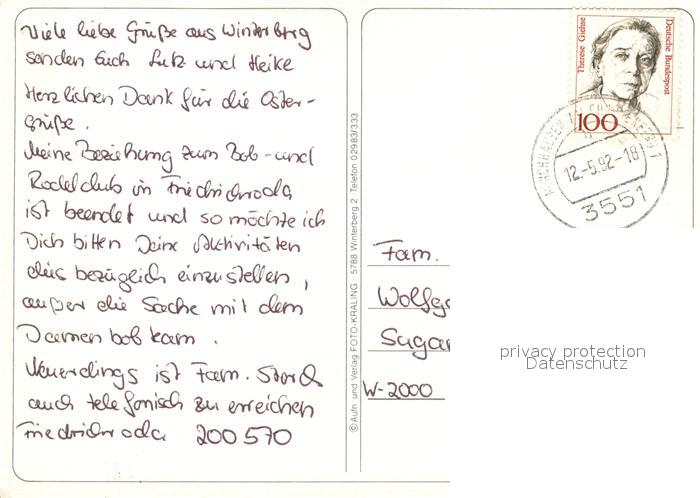 Viele liebe Grüße aus Winterberg
senden Euch Lutz und Heike
Herzlichen Dank für die Oster-
grüße.
Meine Beziehung zum Bob- und
Rodelclub in Friedrichroda
ist beendet und so möchte ich
Dich bitten Deine Aktivitäten
diesbezüglich einzustellen,
außer die Sache mit dem
Damenbob kam.
Neuerdings ist Fam. Storch
auch telefonisch zu erreichen
Friedrichroda 200570
© Aufn. und Verlag FOTO-KRALING 5788 Winterberg 2 Telefon 02983/333
Therese Giehse
Deutsche Bundespost
100
12.-5.92-18
3551
Fam.
Wolfga
Sugar
W-2000
privacy protection
Datenschutz